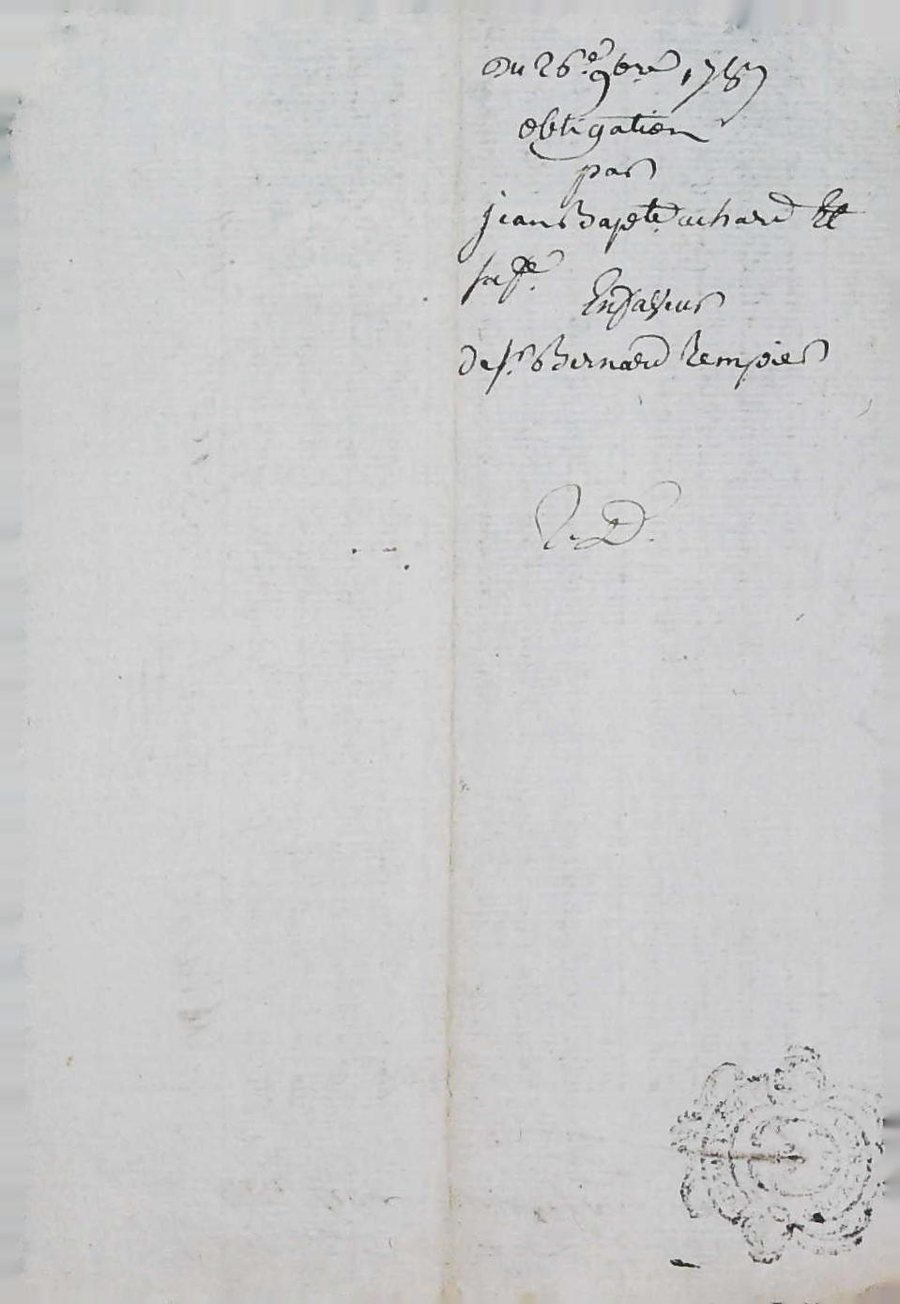 Du 26e. 9bre 1787
obligation
par
jean Bapte achard Et
sa fe.
En faveur
de sr. Bernard Tempier